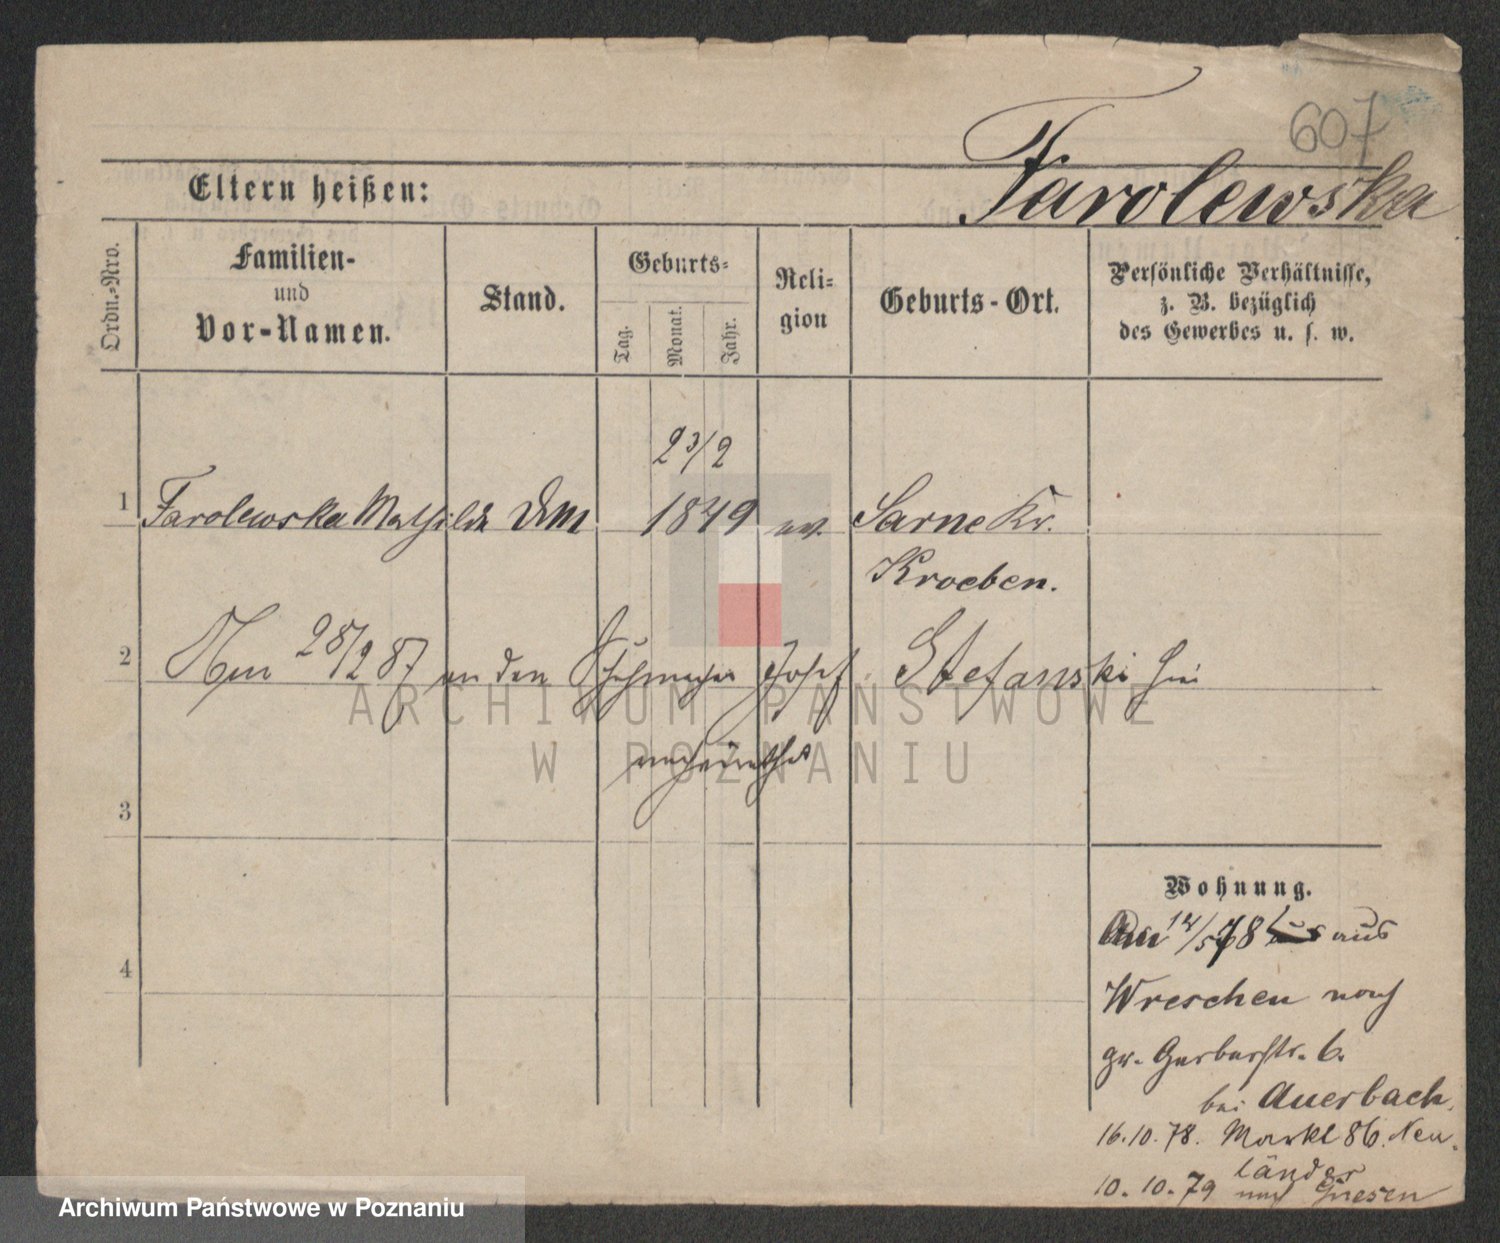 607
Farolewska
Eltern heißen:
Ordn.-Nro.
Familien-
und
Vor-Namen.
Stand.
Geburts-
Tag.
Monat.
Jahr.
Reli-
gion
Geburts-Ort.
Persönliche Verhältnisse,
z. B. bezüglich
des Gewerbes u. s. w.
23/2
1 Farolewska Mathilde 1849 ev. Sarne Kr.
Kroeben.
2 28/2 87 an den Schuhmacher Josef Stefanski hier
verheirathet
3
4
Wohnung.
Am 14/5 78 aus
Wreschen nach
gr. Gerberstr. 6.
bei Auerbach.
16.10.78. Markt 86. Neu-
länder
10.10.79 nach Gnesen
ARCHIWUM PAŃSTWOWE
W POZNANIU
Archiwum Państwowe w Poznaniu